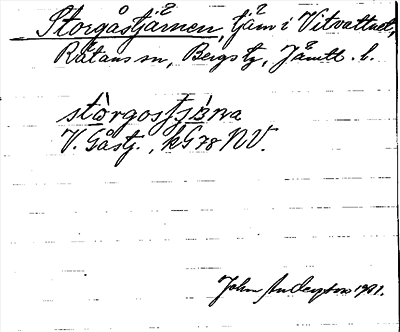 Storgåstjärnen, tjärn i Vitvattnet,
Rätans sn, Bergs tg, Jämtl. l.
stòrgostjæ̀rna
V. Gåstj., kG 78 NV.
John Anderson 1921.